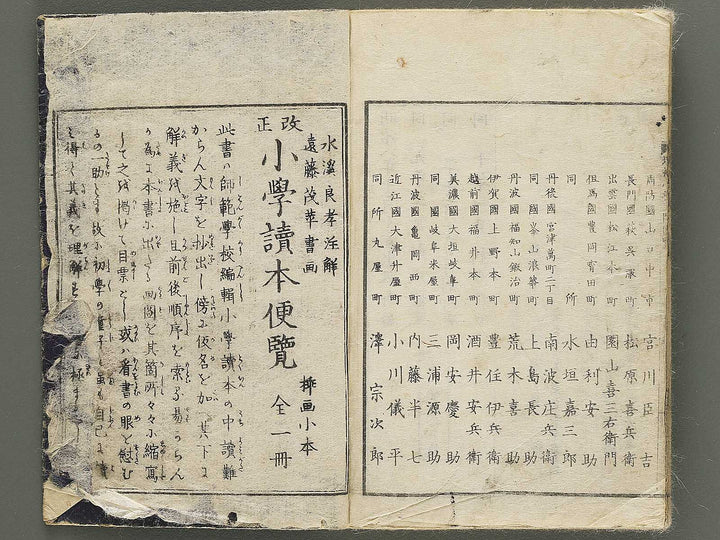 周防國山口中市 宮川臣吉
長門國萩呉津町 松原喜兵衛
出雲國松江本町 園山喜三右衛門
但馬國豊岡宵田町 由利安助
同所 水垣嘉三郎
丹後國宮津萬町二丁目 南波庄兵衛
同國峯山浪華町 上島長助
丹波國福知山鍛治町 荒木喜助
伊賀國上野本町 豊任伊兵衛
越前國福井本町 酒井安兵衛
美濃國大垣岐阜町 岡安慶助
同國岐阜米屋町 三浦源助
丹波國亀岡西町 内藤半七
近江國大津升屋町 小川儀平
同所丸屋町 澤宗次郎
水溪良孝注解
遠藤茂平書画
改正
小學讀本便覽 全一冊
挿画小本
此書ハ師範學校編輯小學讀本の中讀難
からん文字を抄出し傍に仮名を加へ其下に
解義を施し且前後順序を索る易からん
が為に本書に出たる画圖を其箇所々々に縮寫
して之を掲げて目票とし或ハ看書の眼を慰む
るの一助とす故に初學の童子と雖も自己に讀
を得て其義を理解